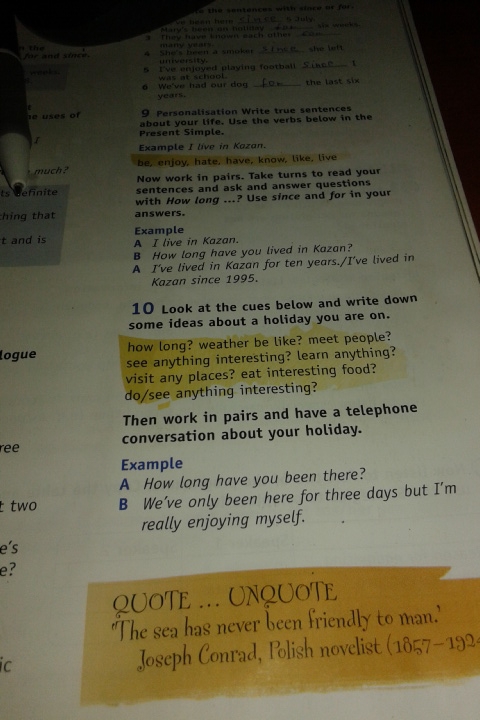 te the sentences with since or for.
've been here since 5 July.
Mary's been on holiday six weeks.
3 They have known each other
many years.
4 She's been a smoker since she left
university.
5 I've enjoyed playing football since I
was at school.
6 We've had our dog for the last six
years.
9 Personalisation Write true sentences
about your life. Use the verbs below in the
Present Simple.
Example I live in Kazan.
be, enjoy, hate, have, know, like, live
Now work in pairs. Take turns to read your
sentences and ask and answer questions
with How long ...? Use since and for in your
answers.
Example
A I live in Kazan.
B How long have you lived in Kazan?
A I've lived in Kazan for ten years./I've lived in
Kazan since 1995.
10 Look at the cues below and write down
some ideas about a holiday you are on.
how long? weather be like? meet people?
see anything interesting? learn anything?
visit any places? eat interesting food?
do/see anything interesting?
Then work in pairs and have a telephone
conversation about your holiday.
Example
A How long have you been there?
B We've only been here for three days but I'm
really enjoying myself.
QUOTE ... UNQUOTE
'The sea has never been friendly to man.'
Joseph Conrad, Polish novelist (1857–192
n the
for and since.
e uses of
much?
ts definite
thing that
t and is
logue
ree
t two
e's
e?
ic